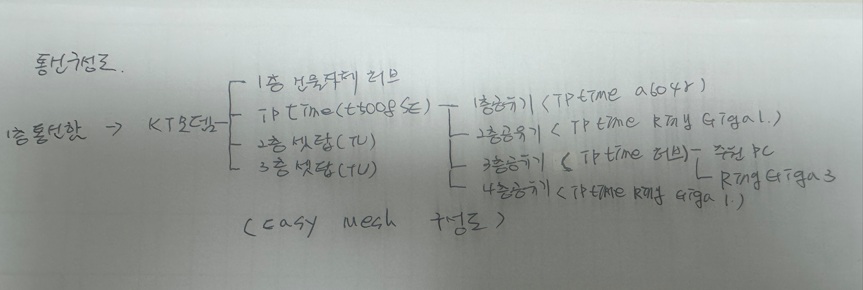 통신구성도.
1층 건물자체 허브
1층 통신함 → KT모뎀
IPtime(t5008SE)
1층공유기 (IPtime a604r)
2층 셋탑(TV)
2층공유기 (IPtime Ring Giga1.)
3층 셋탑(TV)
3층공유기 (IPtime 허브) PC
Ring Giga3
4층공유기 (IPtime Ring Giga1.)
(Easy Mesh 구성도)